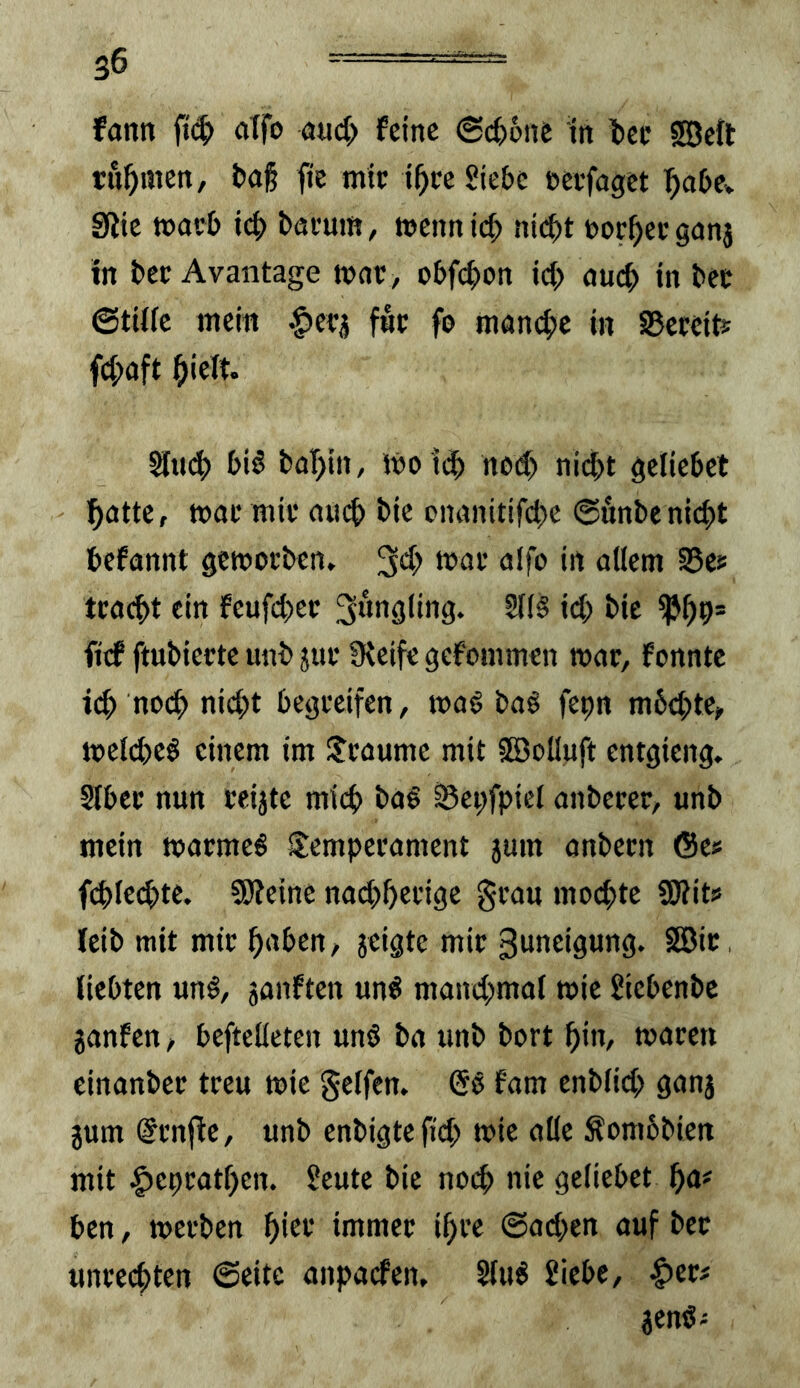 36
kann sich also auch keine Schöne in der Welt
rühmen, daß sie mir ihre Liebe versaget habe.
Nie warb ich darum, wenn ich nicht vorher ganz
in der Avantage war, obschon ich auch in der
Stille mein Herz für so manche in Bereit-
schaft hielt.
Auch bis dahin, wo ich noch nicht geliebet
hatte, war mir auch die onanitische Sünde nicht
bekannt geworden. Ich war also in allem Be-
tracht ein keuscher Jüngling. Als ich die Phy-
sick studierte und zur Reife gekommen war, konnte
ich noch nicht begreifen, was das seyn möchte,
welches einem im Traume mit Wollust entgieng.
Aber nun reizte mich das Beyspiel anderer, und
mein warmes Temperament zum andern Ge-
schlechte. Meine nachherige Frau mochte Mit-
leid mit mir haben, zeigte mir Zuneigung. Wir
liebten uns, zankten uns manchmal wie Liebende
zanken, bestelleten uns da und dort hin, waren
einander treu wie Felsen. Es kam endlich ganz
zum Ernste, und endigte sich wie alle Komödien
mit Heyrathen. Leute die noch nie geliebet ha-
ben, werden hier immer ihre Sachen auf der
unrechten Seite anpacken. Aus Liebe, Her-
zens-